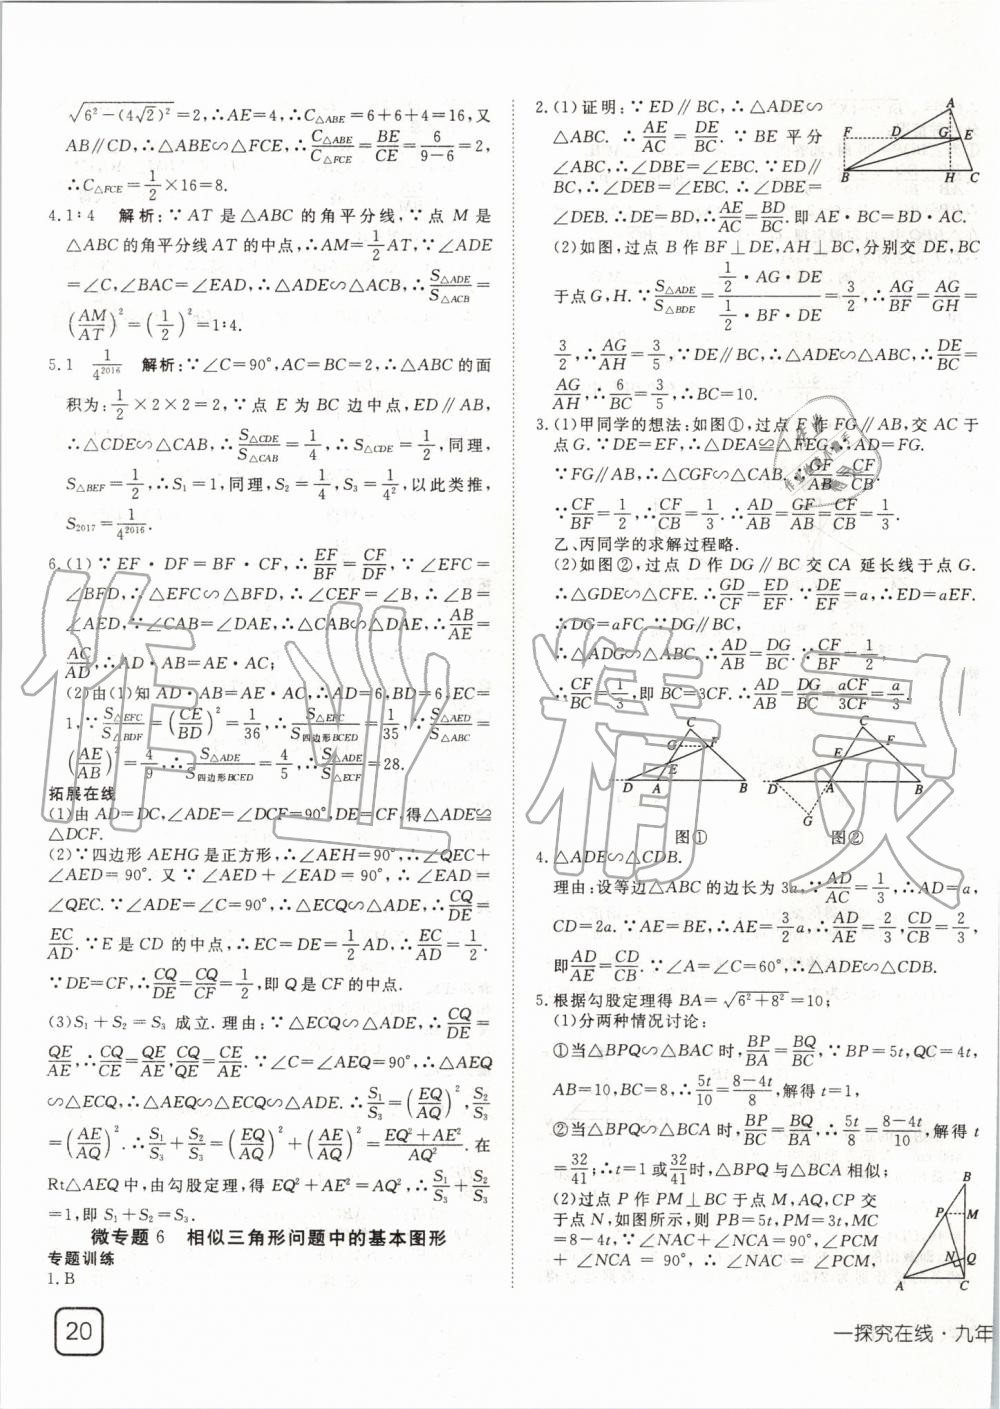 √(6²-(4√2)²)=2,∴AE=4,∴C△ABE=6+6+4=16,又
AB∥CD,∴△ABE∽△FCE,∴C△ABE/C△FCE=BE/CE=6/(9-6)=2,
∴C△FCE=1/2×16=8.
4.1∶4 解析:∵AT是△ABC的角平分线,∵点M是
△ABC的角平分线AT的中点,∴AM=1/2AT,∵∠ADE
=∠C,∠BAC=∠EAD,∴△ADE∽△ACB,∴S△ADE/S△ACB=
(AM/AT)²=(1/2)²=1∶4.
5.1 1/4²⁰¹⁶ 解析:∵∠C=90°,AC=BC=2,∴△ABC的面
积为:1/2×2×2=2,∵点E为BC边中点,ED∥AB,
∴△CDE∽△CAB,∴S△CDE/S△CAB=1/4,∴S△CDE=1/2,同理,
S△BEF=1/2,∴S₁=1,同理,S₂=1/4,S₃=1/4²,以此类推,
S₂₀₁₇=1/4²⁰¹⁶.
6.(1)∵EF·DF=BF·CF,∴EF/BF=CF/DF,∵∠EFC=
∠BFD,∴△EFC∽△BFD,∴∠CEF=∠B,∴∠B=
∠AED,∵∠CAB=∠DAE,∴△CAB∽△DAE,∴AB/AE=
AC/AD,∴AD·AB=AE·AC;
(2)由(1)知AD·AB=AE·AC,∴AD=6,BD=6,EC=
1,∵S△EFC/S△BDF=(CE/BD)²=1/36,∴S△EFC/S四边形BCED=1/35,∵S△AED/S△ABC=
(AE/AB)²=4/9,∴S△ADE/S四边形BCED=4/5,∴S△ADE/S△ECF=28.
拓展在线
(1)由AD=DC,∠ADE=∠DCF=90°,DE=CF,得△ADE≌
△DCF.
(2)∵四边形AEHG是正方形,∴∠AEH=90°,∴∠QEC+
∠AED=90°.又∵∠AED+∠EAD=90°,∴∠EAD=
∠QEC.∵∠ADE=∠C=90°,∴△ECQ∽△ADE,∴CQ/DE=
EC/AD.∵E是CD的中点,∴EC=DE=1/2AD,∴EC/AD=1/2.
∵DE=CF,∴CQ/DE=CQ/CF=1/2,即Q是CF的中点.
(3)S₁+S₂=S₃成立.理由:∵△ECQ∽△ADE,∴CQ/DE=
QE/AE,∴CQ/CE=QE/AE,CQ/QE=CE/AE.∵∠C=∠AEQ=90°,∴△AEQ
∽△ECQ,∴△AEQ∽△ECQ∽△ADE.∴S₁/S₃=(EQ/AQ)²,S₂/S₃
=(AE/AQ)².∴S₁/S₃+S₂/S₃=(EQ/AQ)²+(AE/AQ)²=(EQ²+AE²)/AQ².在
Rt△AEQ中,由勾股定理,得EQ²+AE²=AQ²,∴S₁/S₃+S₂/S₃
=1,即S₁+S₂=S₃.
微专题6 相似三角形问题中的基本图形
专题训练
1.B
20
2.(1)证明:∵ED∥BC,∴△ADE∽
△ABC.∴AE/AC=DE/BC.∵BE平分
∠ABC,∴∠DBE=∠EBC.∵ED∥
BC,∴∠DEB=∠EBC.∴∠DBE=
∠DEB.∴DE=BD,∴AE/AC=BD/BC.即AE·BC=BD·AC.
A
F D G E
B H C
(2)如图,过点B作BF⊥DE,AH⊥BC,分别交DE,BC
于点G,H.∵S△ADE/S△BDE=(1/2·AG·DE)/(1/2·BF·DE)=3/2,∴AG/BF=AG/GH=
3/2,∴AG/AH=3/5,∵DE∥BC,∴△ADE∽△ABC,∴DE/BC=
AG/AH,∴6/BC=3/5,∴BC=10.
3.(1)甲同学的想法:如图①,过点F作FG∥AB,交AC于
点G.∵DE=EF,∴△DEA≌△FEG,∴AD=FG.
∵FG∥AB,∴△CGF∽△CAB.∴GF/AB=CF/CB.
∵CF/BF=1/2,∴CF/CB=1/3.∴AD/AB=GF/AB=CF/CB=1/3.
乙、丙同学的求解过程略.
(2)如图②,过点D作DG∥BC交CA延长线于点G.
∴△GDE∽△CFE.∴GD/CF=ED/EF.∵DE/EF=a,∴ED=aEF.
∴DG=aFC.∵DG∥BC,
∴△ADG∽△ABC.∴AD/AB=DG/BC.∵CF/BF=1/2,
∴CF/BC=1/3,即BC=3CF.∴AD/AB=DG/BC=aCF/3CF=a/3.
C
G F
E
D A B
图①
C
E F
D A B
G
图②
4.△ADE∽△CDB.
理由:设等边△ABC的边长为3a,∵AD/AC=1/3,∴AD=a,
CD=2a.∵AE=BE,∴AE=3/2a,∴AD/AE=2/3,CD/CB=2/3,
即AD/AE=CD/CB.∵∠A=∠C=60°,∴△ADE∽△CDB.
5.根据勾股定理得BA=√(6²+8²)=10;
(1)分两种情况讨论:
①当△BPQ∽△BAC时,BP/BA=BQ/BC,∵BP=5t,QC=4t,
AB=10,BC=8,∴5t/10=(8-4t)/8,解得t=1,
②当△BPQ∽△BCA时,BP/BC=BQ/BA,∴5t/8=(8-4t)/10,解得t
=32/41;∴t=1或32/41时,△BPQ与△BCA相似;
(2)过点P作PM⊥BC于点M,AQ,CP交
于点N,如图所示,则PB=5t,PM=3t,MC
=8-4t,∵∠NAC+∠NCA=90°,∠PCM
+∠NCA=90°,∴∠NAC=∠PCM,
B
P M
N Q
A C
一探究在线·九年
作业精灵